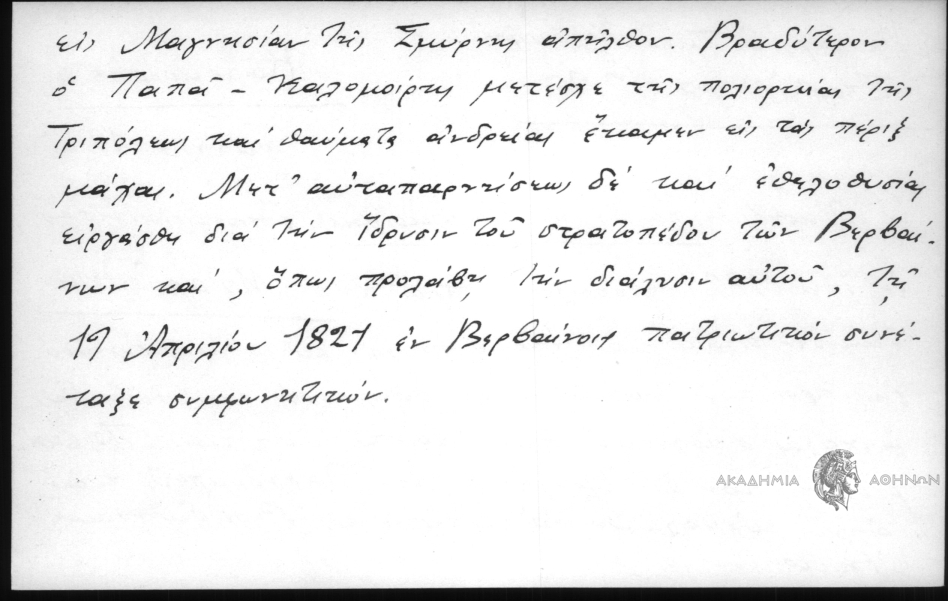 εἰς Μαγνησίαν τῆς Σμύρνης ἀπῆλθον. Βραδύτερον
ὁ Παπᾶ - Καλομοίρης μετέσχε τῆς πολιορκίας τῆς
Τριπόλεως καί θαύματα ἀνδρείας ἔκαμεν εἰς τάς πέριξ
μάχας. Μετ' αὐταπαρνήσεως δέ καί ἐθελοθυσίας
εἰργάσθη διά τήν ἵδρυσιν τοῦ στρατοπέδου τῶν Βερβαί-
νων καί, ὅπως προλάβῃ τήν διάλυσιν αὐτοῦ, τῇ
19 Ἀπριλίου 1821 ἐν Βερβαίνοις πατριωτικόν συνέ-
ταξε συμφωνητικόν.
ΑΚΑΔΗΜΙΑ ΑΘΗΝΩΝ